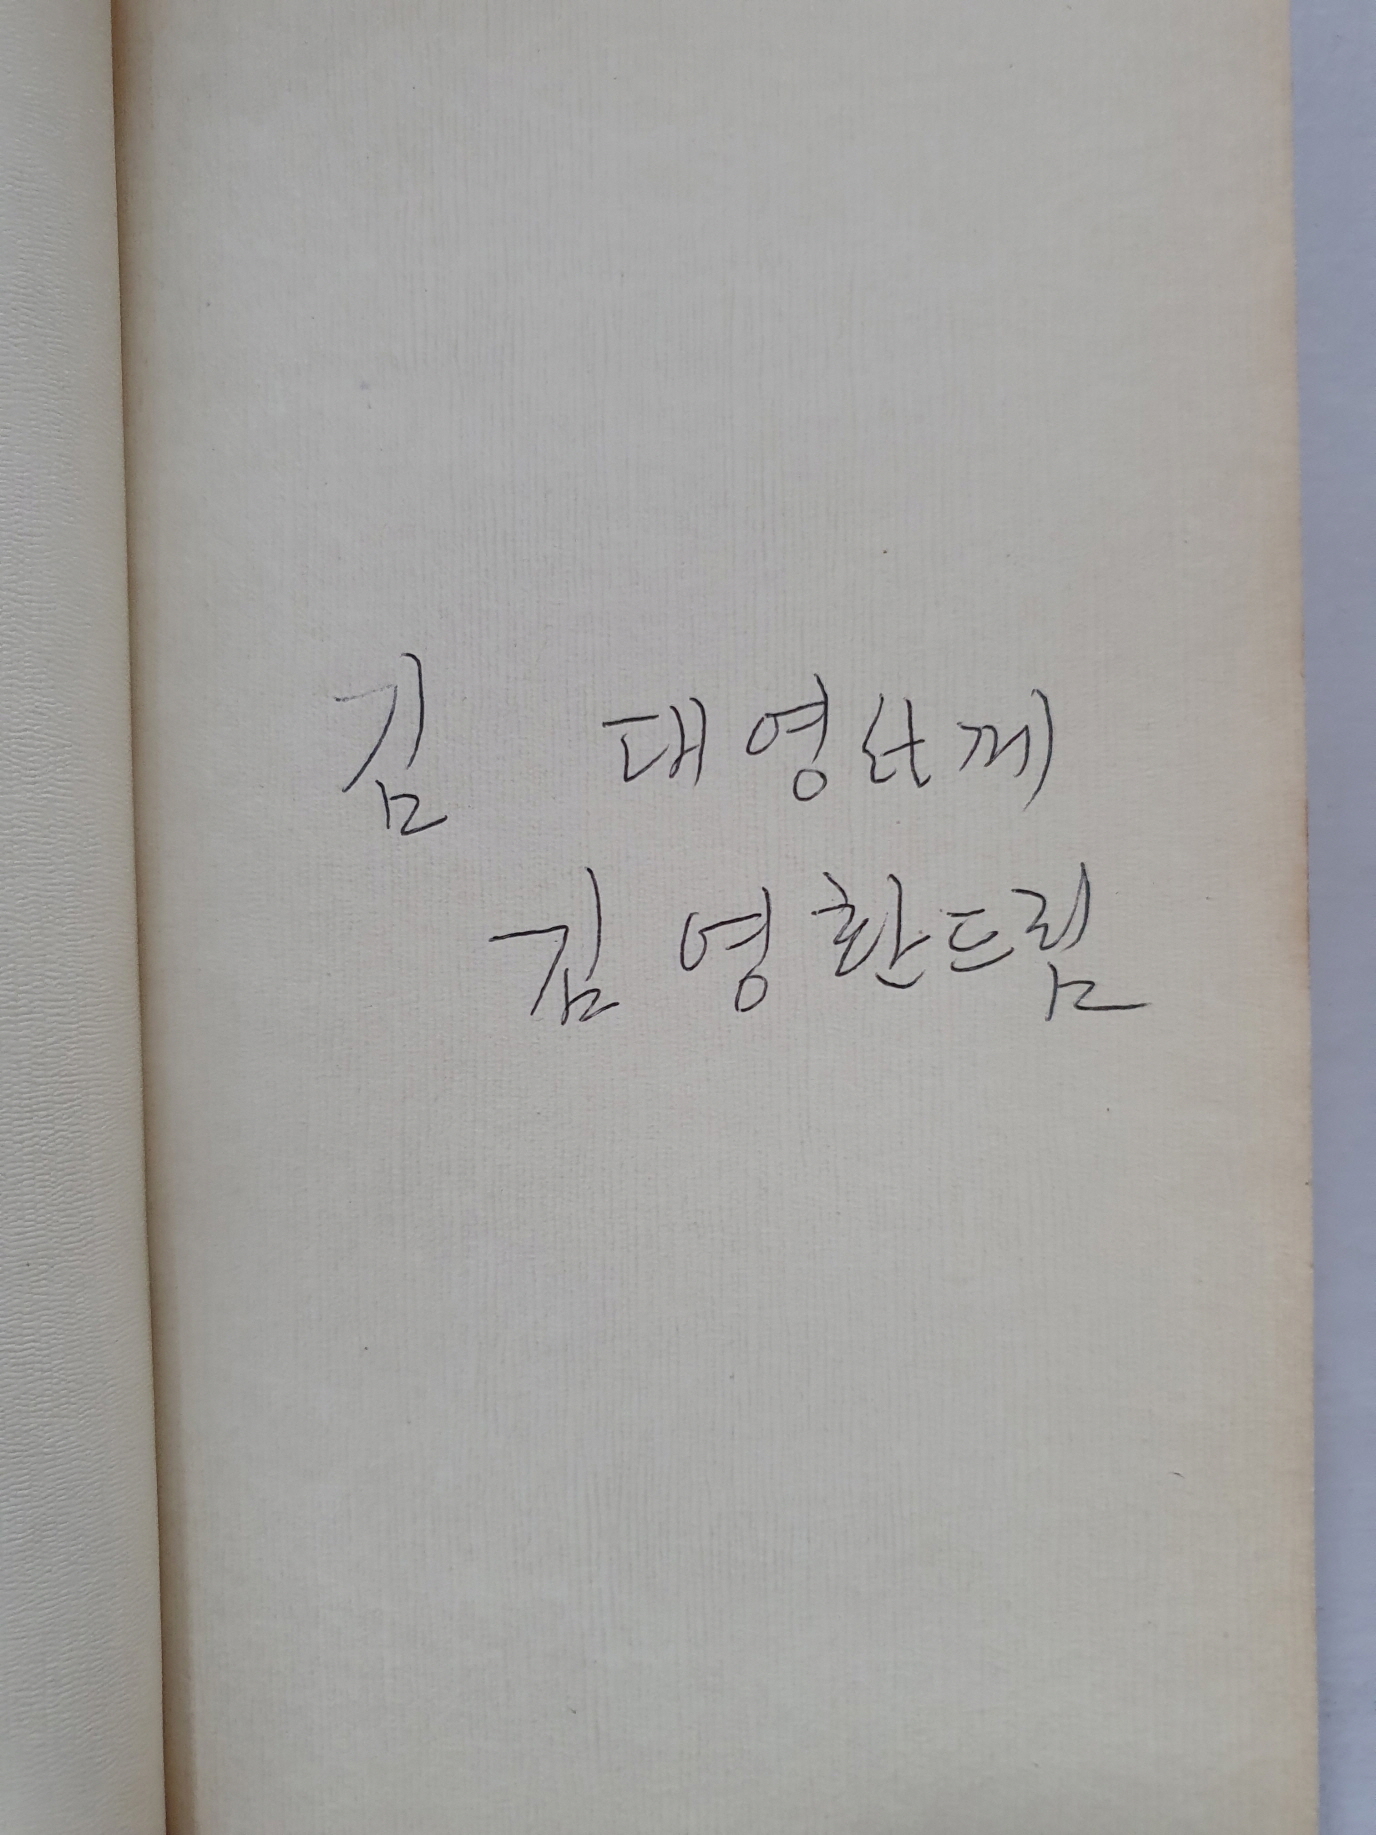 김 대영님께
김영환드림